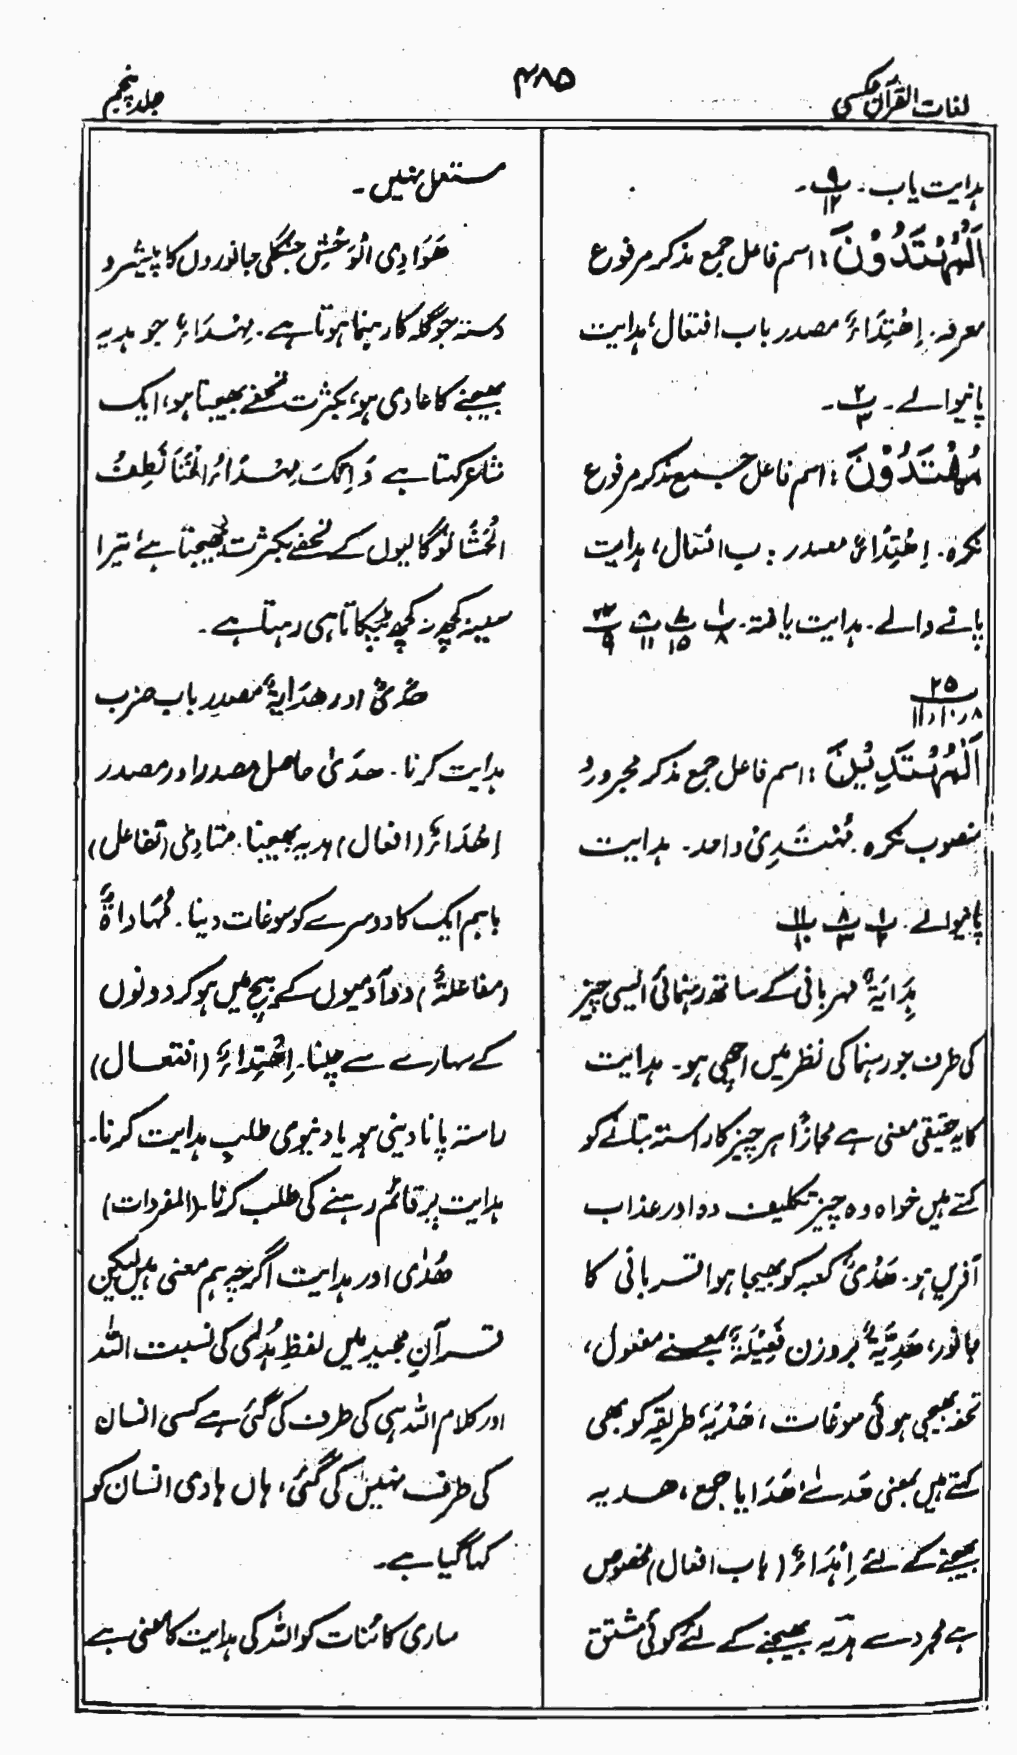 لغات القرآن عکسی
۴۸۵
جلد پنجم
ہدایت یاب۔ پ ۹ ۱۲۔
اَلْمُهْتَدُوْنَ: اسم فاعل جمع مذکر مرفوع
معرفہ۔ اِهْتِدَاءٌ مصدر باب افتعال، ہدایت
پانیوالے۔ پ ۲ ۳۔
مُهْتَدُوْنَ: اسم فاعل جمع مذکر مرفوع
نکرہ۔ اِهْتِدَاءٌ مصدر باب افتعال، ہدایت
پانے والے۔ ہدایت یافتہ۔ پ ۱ ۸ پ ۸ ۱۵ پ ۸ ۱۱ پ ۲۳ ۹
پ ۲۵ ۸، ۱۰، ۱۱
اَلْمُهْتَدِيْنَ: اسم فاعل جمع مذکر مجرور و
منصوب نکرہ۔ مُهْتَدِیْ واحد۔ ہدایت
پانیوالے۔ پ ۱ ۲ پ ۸ ۳ پ ۱۱ ۱۰
ہِدَایَةٌ مہربانی کے ساتھ رہنمائی ایسی چیز
کی طرف جو رہنما کی نظر میں اچھی ہو۔ ہدایت
کا یہ حقیقی معنی ہے مجازًا ہر چیز کا راستہ بتانے کو
کہتے ہیں خواہ وہ چیز تکلیف دہ اور عذاب
آفریں ہو۔ هَدْیٌ کعبہ کو بھیجا ہوا قربانی کا
جانور، هَدِیَّةٌ بروزن فَعِیْلَةٌ بمعنے مفعول،
تحفہ بھیجی ہوئی سوغات، هَدْیَةٌ طریقہ کو بھی
کہتے ہیں بمعنی هَدْیٌ، هَدَایا جمع، ھدیہ
بھیجنے کے لئے اِهْدَاءٌ (باب افعال) مخصوص
ہے مجرد سے ہدیہ بھیجنے کے لئے کوئی مشتق
مستعمل نہیں۔
هَوَادِی الْوَحْشِ جنگلی جانوروں کا پیشرو
دستہ جو گلہ کا رہنما ہوتا ہے۔ مِهْدَاءٌ جو ہدیہ
بھیجنے کا عادی ہو، بکثرت تحفے بھیجتا ہو، ایک
شاعر کہتا ہے وَاِنَّكَ مِهْدَاءُ الْخَنَا نَطِفُ
الْحَشَا تو گالیوں کے تحفے بکثرت بھیجتا ہے، تیرا
سینہ کچھ نہ کچھ ٹپکاتا ہی رہتا ہے۔
هُدًی اور هِدَایَةٌ مصدر باب ضرب
ہدایت کرنا۔ هُدًی حاصل مصدر اور مصدر
اِهْدَاءٌ (افعال) ہدیہ بھیجنا۔ تَهَادِیْ (تفاعل)
باہم ایک کا دوسرے کو سوغات دینا۔ مُهَادَاةٌ
(مفاعلةٌ) دو آدمیوں کے بیچ میں ہو کر دونوں
کے سہارے سے چلنا۔ اِهْتِدَاءٌ (افتعال)
راستہ پانا دینی ہو یا دنیوی طلب ہدایت کرنا۔
ہدایت پر قائم رہنے کی طلب کرنا۔ (المفردات)
هُدٰی اور ہدایت اگرچہ ہم معنی ہیں لیکن
قرآن مجید میں لفظِ ہُدٰی کی نسبت اللّٰہ
اور کلام اللّٰہ ہی کی طرف کی گئی ہے کسی انسان
کی طرف نہیں کی گئی، ہاں ہادی انسان کو
کہا گیا ہے۔
ساری کائنات کو اللّٰہ کی ہدایت کا معنی ہے